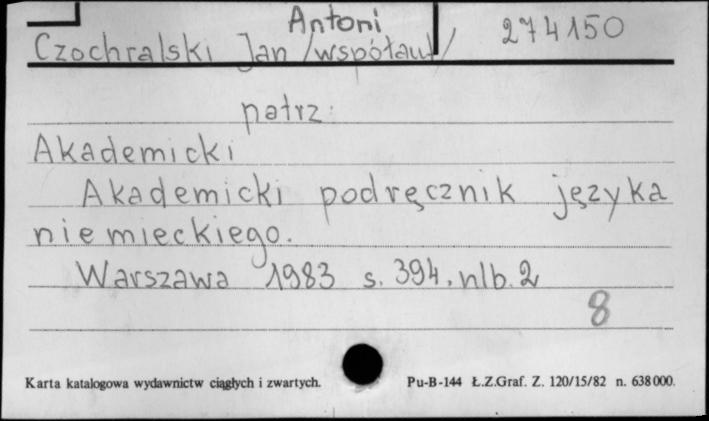 Antoni
Czochralski Jan /współaut/ 274150
patrz:
Akademicki
Akademicki podręcznik języka
niemieckiego.
Warszawa 1983 s. 394, nlb. 2
8
Karta katalogowa wydawnictw ciągłych i zwartych. Pu-B-144 Ł.Z.Graf. Z. 120/15/82 n. 638000.